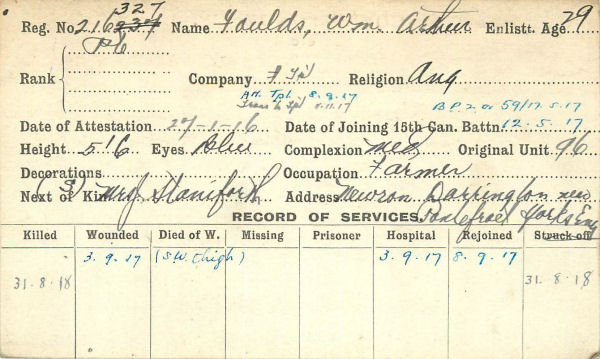 327
Reg. No. 216237 Name Foulds, Wm. Arthur Enlistt. Age 29
Pte
Rank Company # Tp'l Religion Ang
Att. Tpt. 8.8.17
Trans to Tp'l 5.11.17 B.P.2 or 59/17.5.17
Date of Attestation 27-1-16 Date of Joining 15th Can. Battn. 12.5.17
Height 5'6 Eyes Blue Complexion Med. Original Unit 96
Decorations Occupation Farmer
Next of Kin (S) Mrs Staniforth Address Newron Darrington near
RECORD OF SERVICES. Pontefract Yorks Eng
Killed Wounded Died of W. Missing Prisoner Hospital Rejoined Struck off
3.9.17 (S.W. thigh) 3.9.17 8.9.17
31-8-18 31.8.18